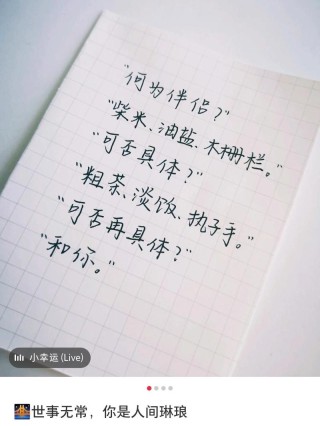 "何为伴侣？"
"柴米、油盐、木栅栏。"
"可否具体？"
"粗茶、淡饭、执子手。"
"可否再具体？"
"和你。"
小幸运 (Live)
🌉世事无常，你是人间琳琅